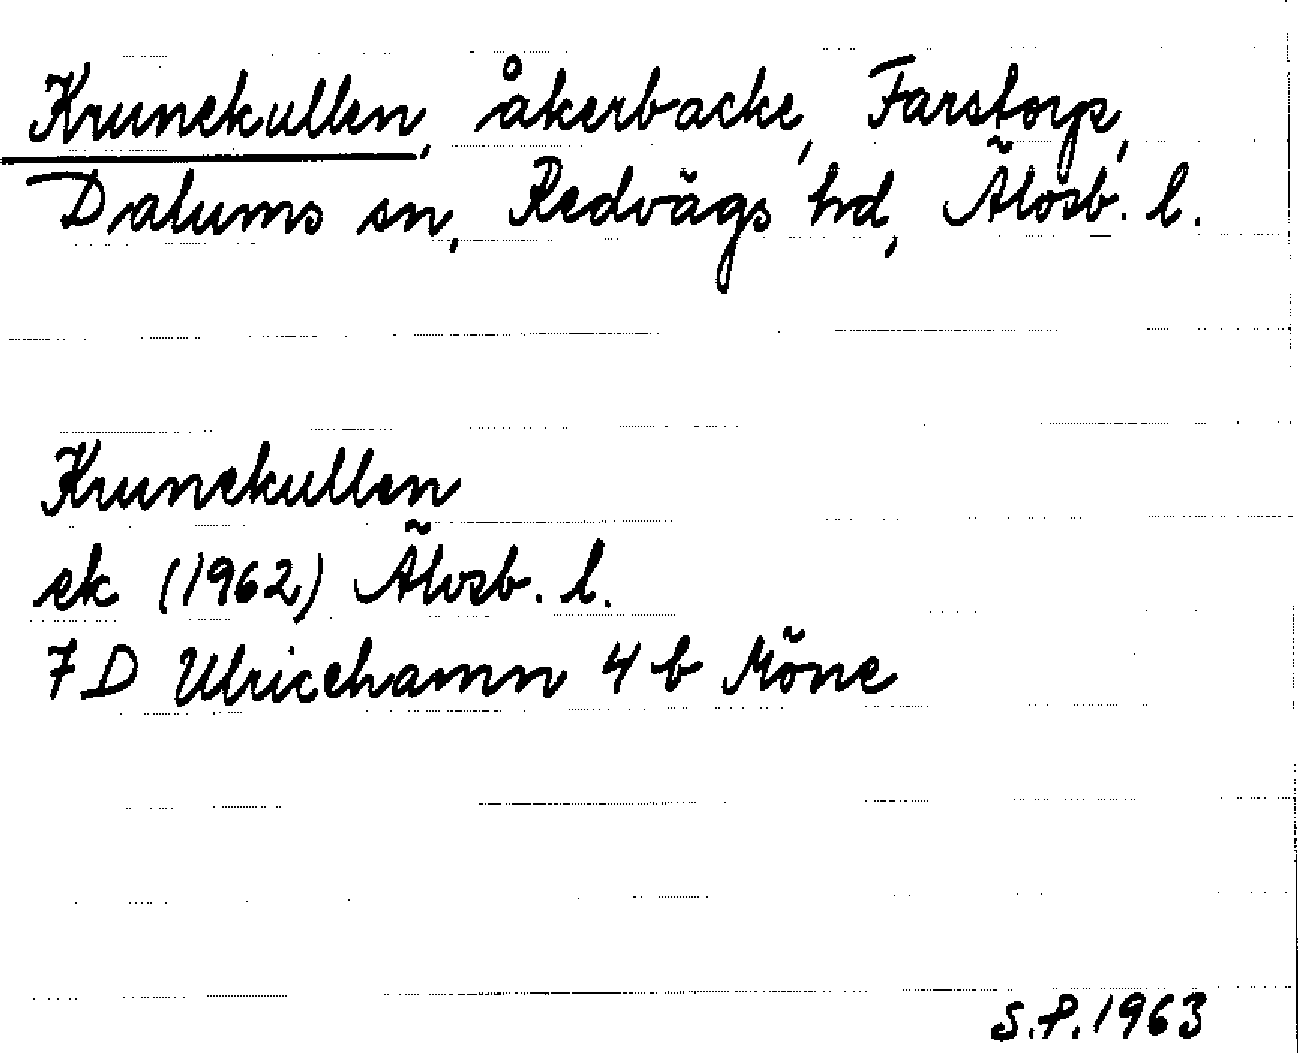 Krunekullen, åkerbacke, Farstorp,
Dalums sn, Redvägs hd, Älvsb. l.
Krunekullen
ek (1962) Älvsb. l.
7D Ulricehamn 4 b Möne
S.P. 1963